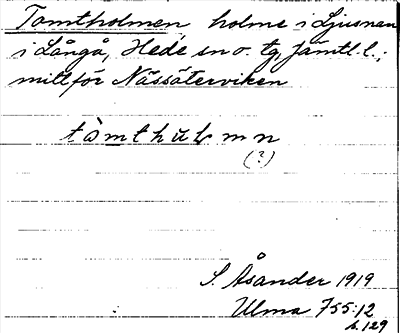 Tomtholmen, holme i Ljusnan
i Långå, Hede sn o. tg, Jämtl. l.;
mittför Nässäterviken
tòmthuḷmn
(?)
S. Åsander 1919
Ulma 755:12
s. 129